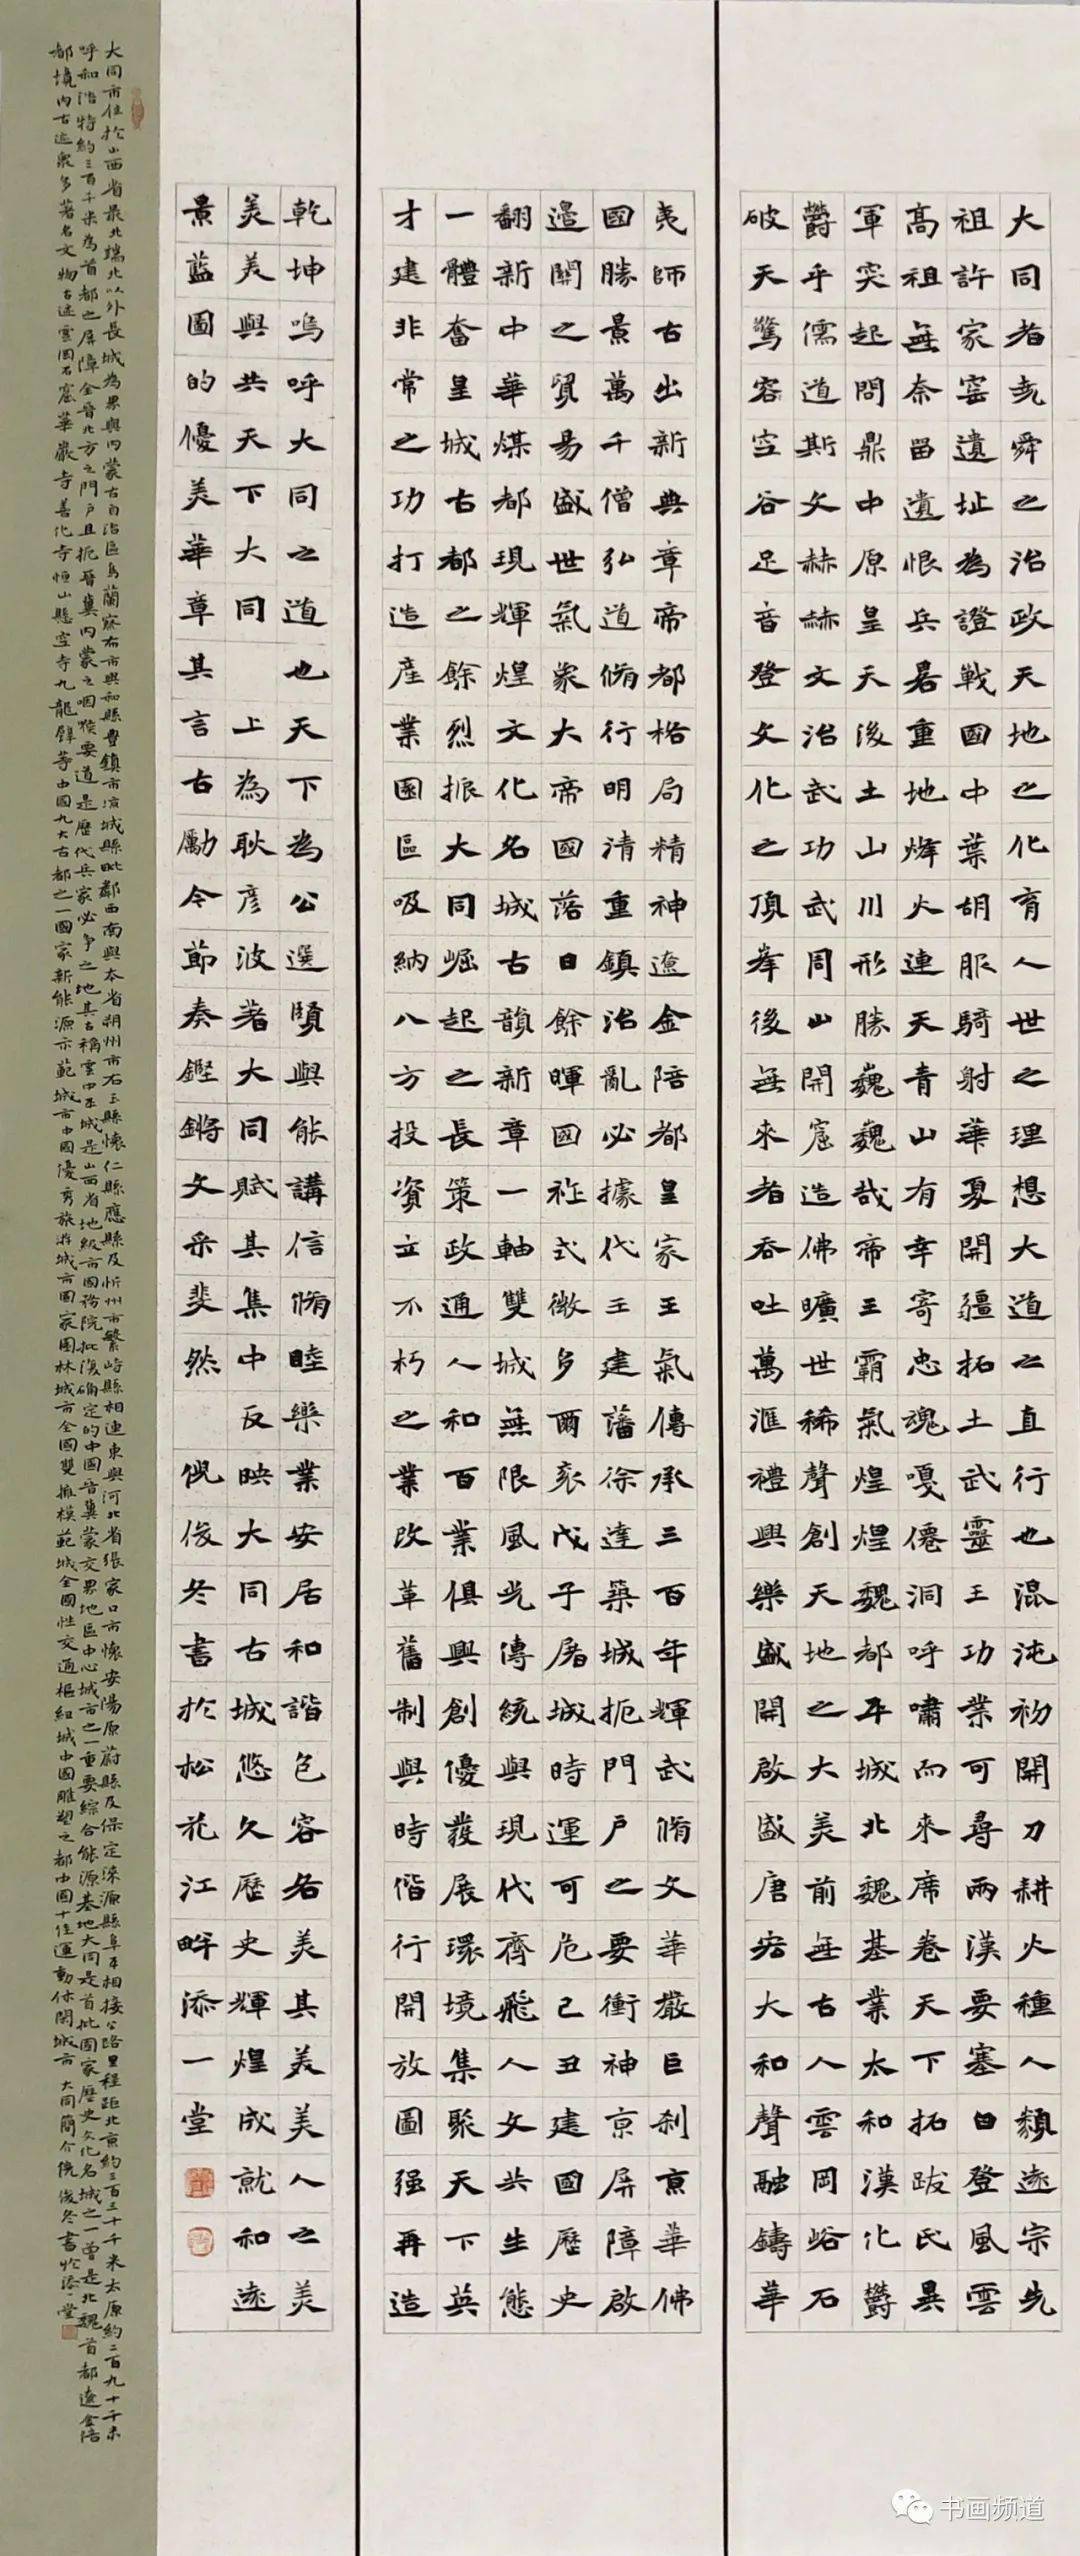 大同者堯舜之治政天地之化育人世之理想大道之直行也混沌初開刀耕火種人類遠宗先
祖許家窑遺址為證戰國中葉胡服騎射華夏開疆拓土武靈王功業可尋兩漢要塞白登風雲
高祖無奈留遺恨兵畧重地烽火連天青山有幸寄忠魂嘎僊洞呼嘯而來席卷天下拓跋氏異
軍突起問鼎中原皇天後土山川形勝巍巍哉帝王霸氣煌煌魏都平城北魏基業太和漢化欝
欝乎儒道斯文赫赫文治武功武周山開窟造佛曠世稀聲創天地之大美前無古人雲岡峪石
破天驚容空谷足音登文化之頂峯後無來者吞吐萬滙禮興樂盛開啟盛唐宏大和聲融鑄華
夷師古出新典章帝都格局精神遼金陪都皇家王氣傳承三百年輝武脩文華嚴巨刹京華佛
國勝景萬千僧弘道脩行明清重鎮治亂必據代王建藩徐達築城扼門户之要衝神京屏障啟
邊關之貿易盛世氣象大帝國落日餘暉國祚式微多爾衮戊子屠城時運可危己丑建國歷史
翻新中華煤都現輝煌文化名城古韻新章一軸雙城無限風光傳統與現代齊飛人文共生態
一體奮呈城古都之餘烈振大同崛起之長策政通人和百業俱興創優發展環境集聚天下英
才建非常之功打造産業園區吸納八方投資立不朽之業改革舊制與時偕行開放圖强再造
乾坤嗚呼大同之道也天下為公選賢與能講信脩睦樂業安居和諧包容各美其美美人之美
美美與共天下大同上為耿彦波著大同賦其集中反映大同古城悠久歷史輝煌成就和遠
景藍圖的優美華章其言古勵今節奏鏗鏘文采斐然 倪俊冬書於松花江畔添一堂
大同市位於山西省最北端北以外長城為界與内蒙古自治區烏蘭察布市興和縣豊鎮市凉城縣毗鄰西南與本省朔州市右玉縣懷仁縣應縣及忻州市繁峙縣相連東與河北省張家口市懷安陽原蔚縣及保定淶源縣阜平相接公路里程距北京約三百三十千米太原約二百九十千米
呼和浩特約三百千米為首都之屏障全晉北方之門户且扼晉冀内蒙之咽喉要道是歷代兵家必争之地其古稱雲中平城是山西省地級市國務院批復确定的中國晉冀蒙交界地區中心城市之一重要綜合能源基地大同是首批國家歷史文化名城之一曾是北魏首都遼金陪
都境内古迹衆多著名文物古迹雲岡石窟華嚴寺善化寺恒山懸空寺九龍壁等中國九大古都之一國家新能源示範城市中國優秀旅游城市國家園林城市全國雙擁模範城全國性交通樞紐城中國雕塑之都中國十佳運動休閑城市 大同簡介倪俊冬書於添一堂
书画频道